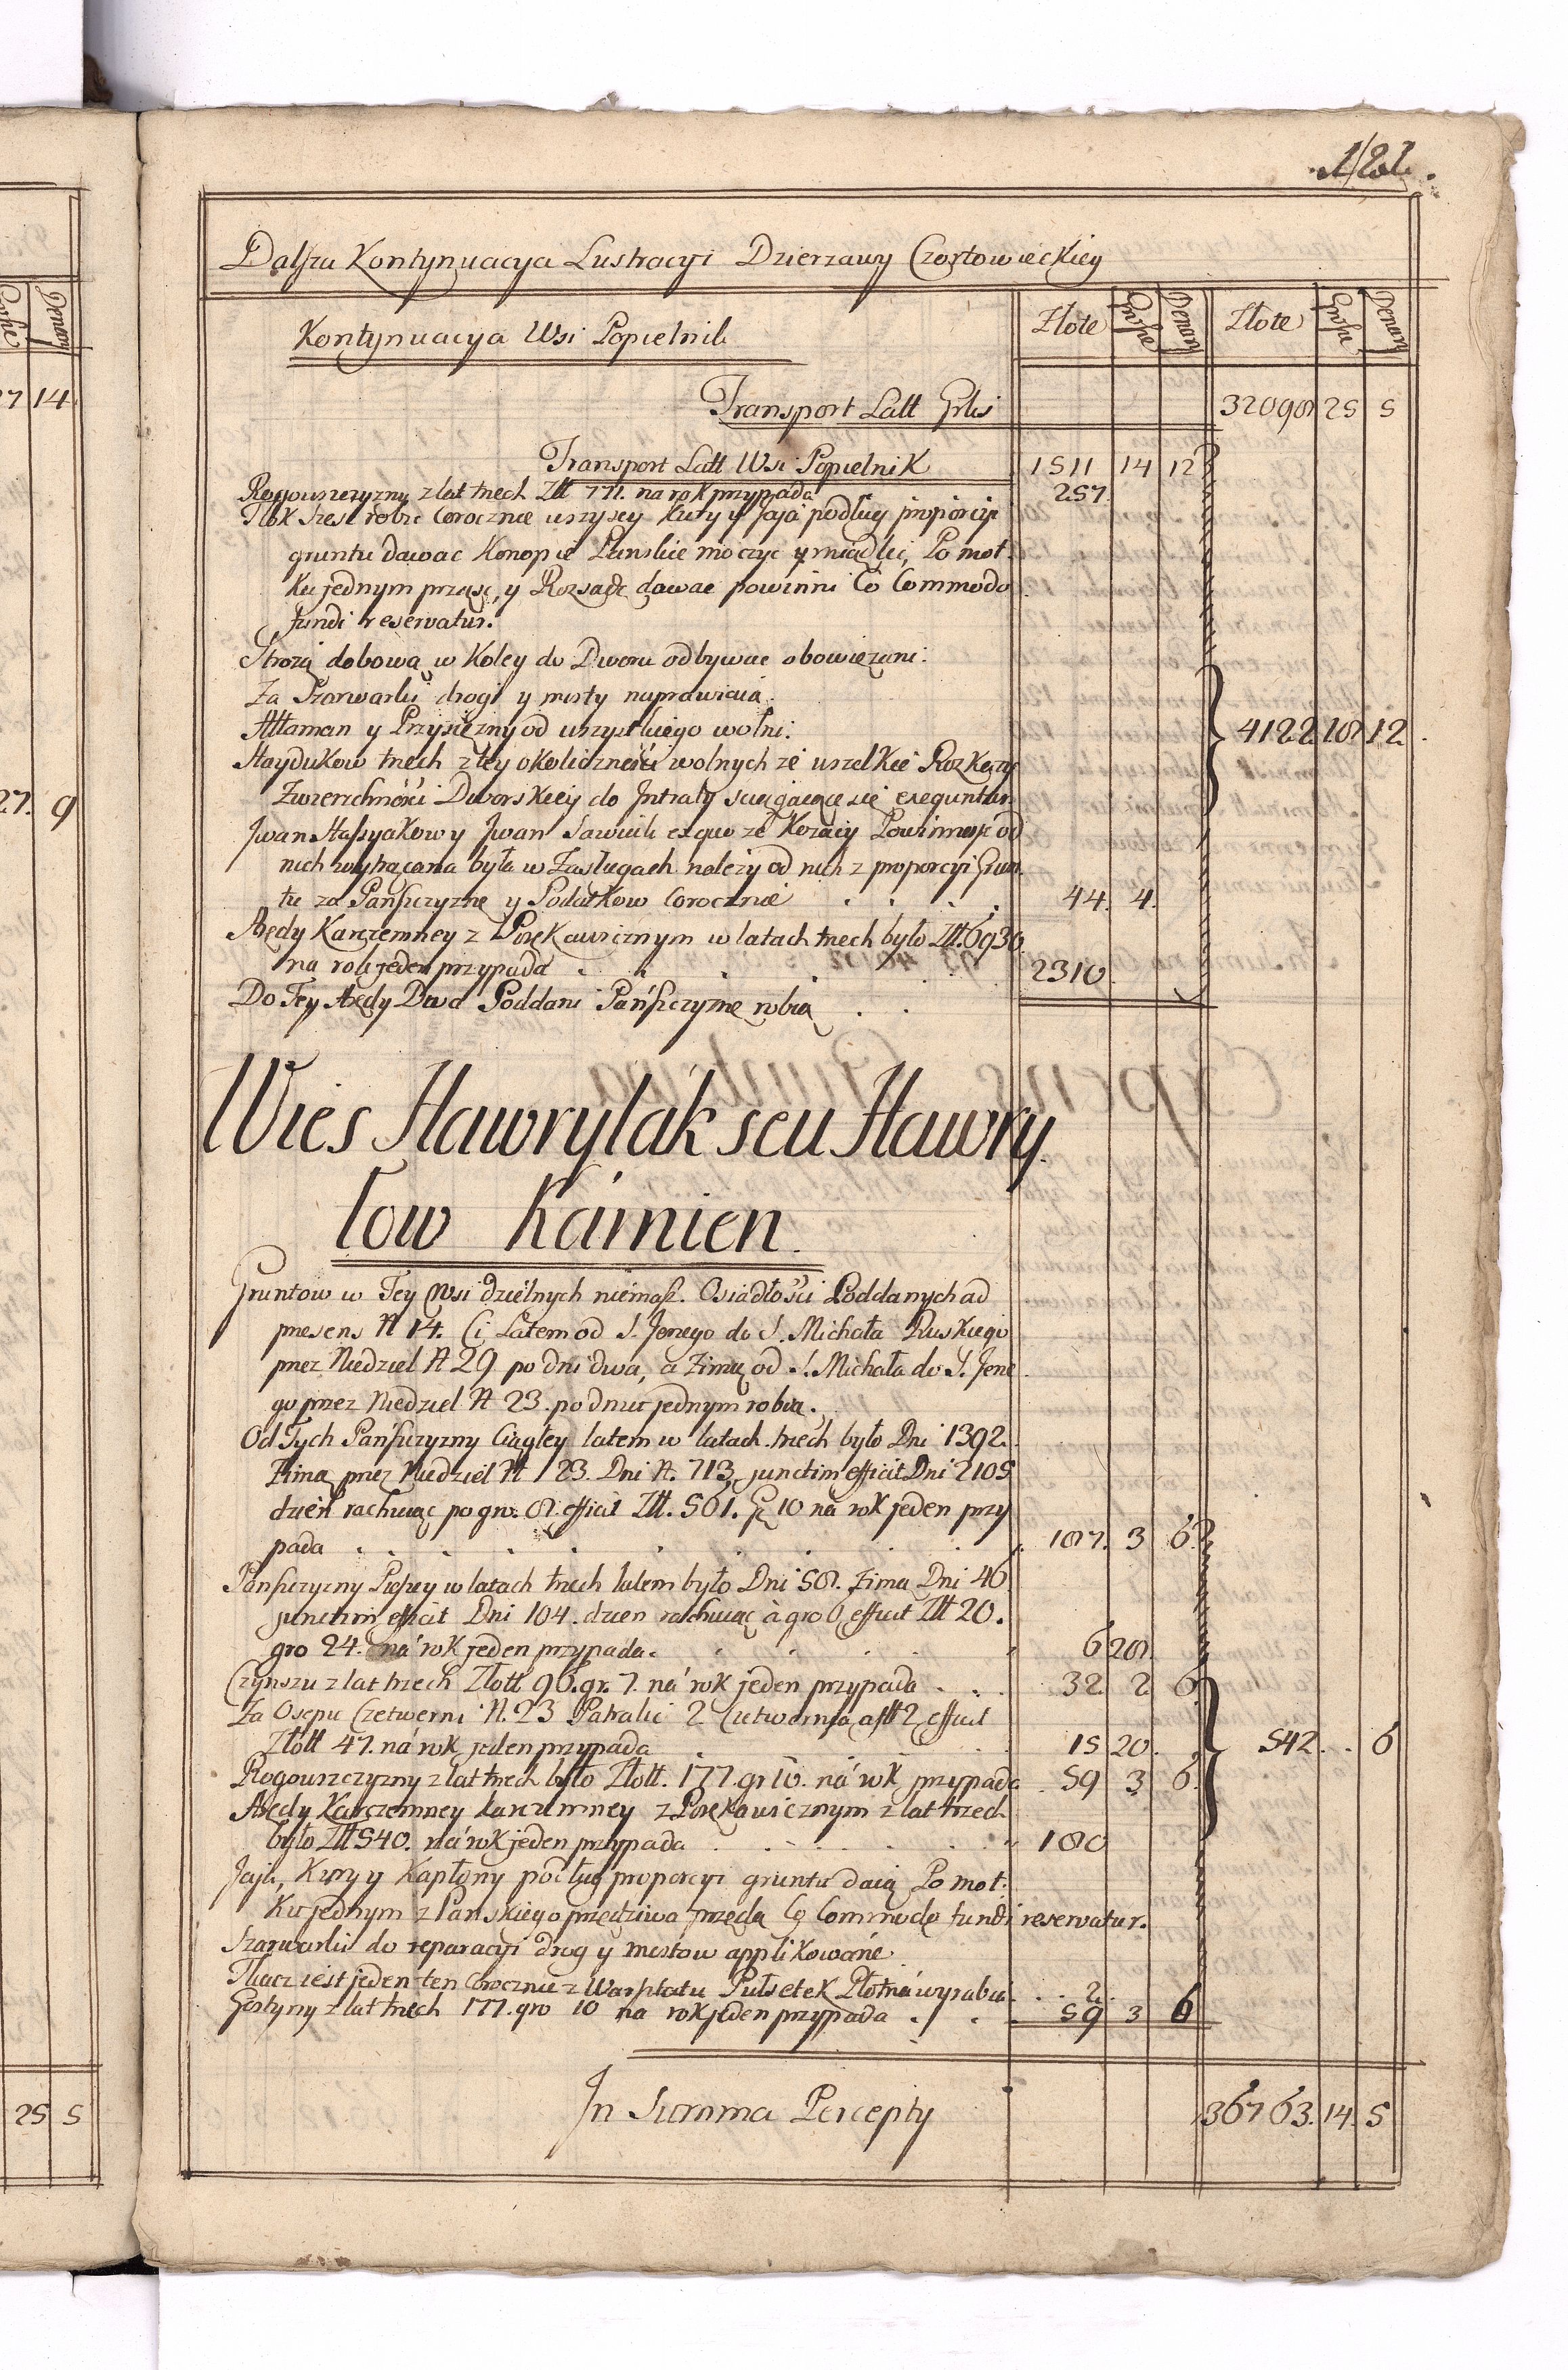 121.
Dalsza Kontynuacya Lustracyi Dzierzawy Czortowieckiey
Kontynuacya Wsi Popielnik
Złote Grosze Denary Złote Grosze Denary
Transport Latt 32098 25 5
Transport Latt Wsi Popielnik 1511 14 12
Rogowszczyzny z lat trzech Złł 771. na rok przypada 257.
Tłok szesc robic Corocznie wszyscy Kury y Jaja podług proporcyi
gruntu dawac Konopie Panskie moczyc y miądlic, Po mot
ku jednym prząsc, y Rozsadę dawac powinni Co Commodo
fundi reservatur.
Strożą dobową w Koley do Dworu odbywac obowiązani.
Za Szarwarki drogi y mosty naprawiaią.
Attaman y Przysiężny od wszystkiego wolni. 4122 18 12
Haydukow trzech z tey okoliczności wolnych ze wszelkie Rozkazy
Zwierzchności Dworskiey do Intraty sciągaiące się exequntur.
Iwan Hassyakowy Iwan Sawicki exquo że Kozacy Powinnosc od
nich wytrącana była w Zasługach należy od nich z proporcyi Grun
tu za Pańszczyznę y Podatkow Corocznie 44. 4.
Arędy Karczemney z Porękawicznym w latach trzech było Złł. 6930
na rok jeden przypada 2310
Do Tey Arędy Dwa Poddani Pańszczyznę robią
Wies Hawrylak seu Hawry
low Kamien.
Gruntow w Tey Wsi dzielnych niemasz. Osiadłości Poddanych ad
presens N 14. Ci Latem od S. Jerzego do S. Michała Ruskiego
przez Niedziel N 29 po dni dwa, a Zimą od S. Michała do S. Jerze
go przez Niedziel N 23. po dniu jednym robią.
Od Tych Pańszczyzny Ciągłey latem w latach trzech było Dni 1392.
Zimą przez Niedziel N 23. Dni N. 713, junctim efficit Dni 2105
dzień rachuiąc po gro. 8. efficit Złł. 561. Gr 10 na rok jeden przy
pada 187. 3 6
Pańszczyzny Pieszey w latach trzech latem było Dni 58. Zimą Dni 46
junctim efficit Dni 104. dzien rachuiąc à gro 6 efficit Złł 20.
gro 24. ná rok jeden przypada. 6 28.
Czynszu z lat trzech Złott 96. gr. 7. ná rok jeden przypada 32. 2 6
Za Osepu Czetwerni N. 23 2 efficit
Złott 47. ná rok jeden przypada 15 20. 542 6
Rogowszczyzny z lat trzech było Złott. 177. gr 10. ná rok przypada 59 3 6.
Arędy Karczemney Karczmney z Porękawicznym z lat trzech
było Złł 540. ná rok jeden przypada 180
Jajk, Kury y Kapłony podług proporcyi gruntu daią Po mot
ku jednym z Panskiego przędziwa przędą Co Commodo fundi reservatur.
Szarwarki do reparacyi drog y mostow applikowane
Tkacz iest jeden ten corocznie z Warsztatu Pułsetek Płotna wyrabia 2.
Gostyny z lat trzech 177. gro 10 na rok jeden przypada 59 3 6
In Summa Percepty 36763. 14. 5